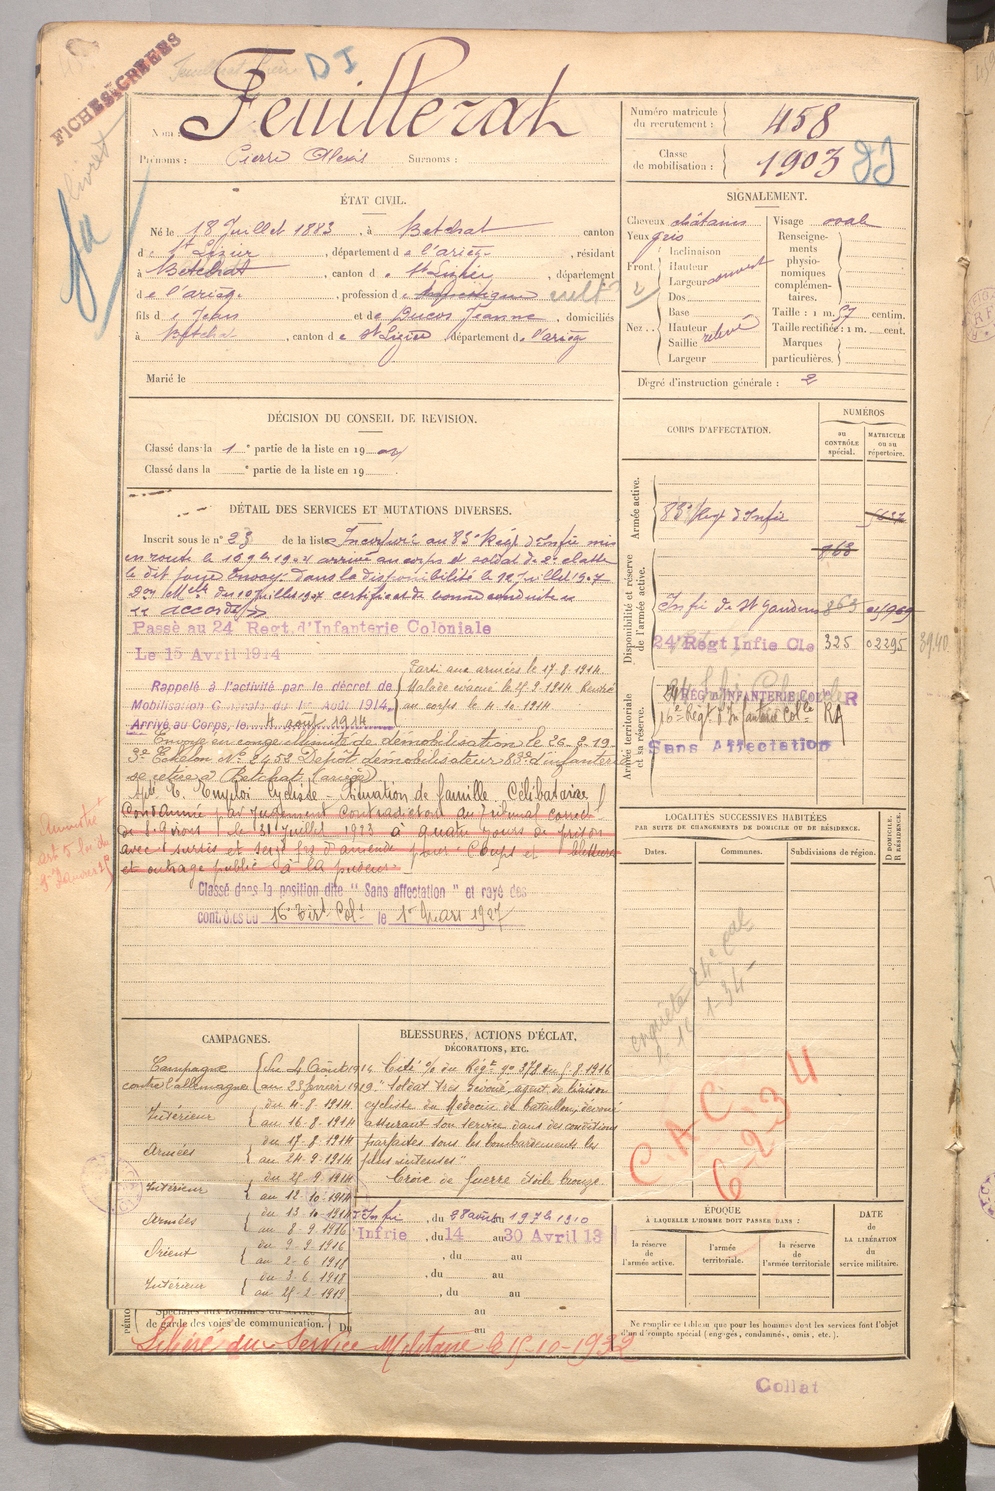 FICHES CRÉÉES
DI
Nom : Feuillerat
Prénoms : Pierre Alexis Surnoms :
Numéro matricule du recrutement : 458
Classe de mobilisation : 1903
ÉTAT CIVIL.
Né le 18 Juillet 1883, à Betchat canton
de St Lizier, département de l'ariège, résidant
à Betchat, canton de St Lizier, département
de l'ariège, profession de cult
fils de Jean et de Ducos Jeanne, domiciliés
à Betchat, canton de St Lizier, département de l'ariège
Marié le
SIGNALEMENT.
Cheveux châtains
Yeux gris
Front Inclinaison
Hauteur
Largeur
Nez Dos
Base
Hauteur
Saillie relevé
Largeur
Visage ovale
Renseignements physionomiques complémentaires.
Taille : 1 m. 57 centim.
Taille rectifiée : 1 m. cent.
Marques particulières.
Degré d'instruction générale : 2
DÉCISION DU CONSEIL DE REVISION.
Classé dans la 1e partie de la liste en 1904
Classé dans la e partie de la liste en 19
DÉTAIL DES SERVICES ET MUTATIONS DIVERSES.
Inscrit sous le n° 23 de la liste Incorporé au 83e Régt d'Infie mis
en route le 16 9bre 1904 arrivé au corps et soldat de 2e classe
le dit jour Envoyé dans la disponibilité le 12 Juillet 1907
Mlle du 10 Juillet 1907 certificat de bonne conduite
accordé
Passé au 24 Regt d'Infanterie Coloniale
Le 15 Avril 1914
Rappelé à l'activité par le décret de
Mobilisation Générale du 1er Août 1914
Arrivé au Corps, le 4 août 1914
Parti aux armées le 17-8-1914.
Malade évacué le 25-9-1914 Rentré
au corps le 4-10-1914
Envoyé en congé illimité de démobilisation le 26-2-19
3e Echelon N° 2452 Dépôt démobilisateur 83e d'infanterie
se retire à Betchat (ariège)
Emploi Cycliste - Situation de famille Célibataire
Condamné par jugement contradictoire du Tribunal correct.
de St Girons le 31 juillet 1923 à quatre jours de prison
avec sursis et seize frs d'amende pour Coups et blessures
et outrage public à la pudeur
Classé dans la position dite "Sans affectation" et rayé des
contrôles du 16e Tirt Colx le 1er Mars 1927
CORPS D'AFFECTATION.
NUMÉROS
au CONTRÔLE spécial.
MATRICULE ou au répertoire.
Armée active.
83e Regt d'Infie
Disponibilité et réserve de l'armée active.
Infie de St Gaudens 863
24e Regt Infie Cle 325 02295
3940
Armée territoriale et sa réserve.
RÉG D'INFANTERIE COLLE
16e Régt d'Infanterie Colle RA
Sans Affectation
LOCALITÉS SUCCESSIVES HABITÉES
PAR SUITE DE CHANGEMENTS DE DOMICILE OU DE RÉSIDENCE.
Dates.
Communes.
Subdivisions de région.
D DOMICILE. R RÉSIDENCE.
C.A.C.
6-2-34
CAMPAGNES.
Campagne contre l'allemagne du 4 Août 1914
au 25 février 1919
Intérieur du 4-8-1914
au 16-8-1914
Armées du 17-8-1914
au 24-9-1914
Intérieur du 25-9-1914
au 12-10-1914
Armées du 13-10-1914
au 8-9-1916
Orient du 9-9-1916
au 2-6-1918
Intérieur du 3-6-1918
au 25-2-1919
BLESSURES, ACTIONS D'ÉCLAT,
DÉCORATIONS, ETC.
Cité % du Régt n° 378 du 8-1916
"Soldat très dévoué, agent de liaison
cycliste du Médecin de bataillon, dévoué
assurant son service dans des conditions
parfaites sous les bombardements les
plus intenses"
Croix de Guerre étoile bronze.
Infie, du 28 août au 19 7bre 1910
Infrie, du 14 au 30 Avril 13
, du au
, du au
, du au
au
de garde des voies de communication. Du au
ÉPOQUE
À LAQUELLE L'HOMME DOIT PASSER DANS :
la réserve de l'armée active.
l'armée territoriale.
la réserve de l'armée territoriale
DATE de LA LIBÉRATION du service militaire.
Ne remplir ce tableau que pour les hommes dont les services font l'objet
d'un décompte spécial (engagés, condamnés, omis, etc.).
Libéré du Service Militaire le 15-10-1932
Collat